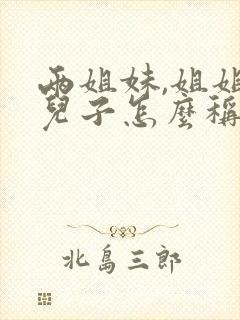 兩姐妹,姐姐
兒子怎麼稱
北島三郎